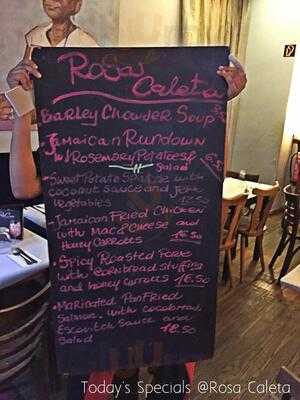 Rosa
Caleta
Barley Chowder Soup
Jamaican Rundown
w/Rosemary Potatoes &
Salad 6.50
- Sweet Potato with
coconut sauce and Jerk
Vegetables
- Jamaican Fried Chicken
with Mac & Cheese and
Honey Carrots 16.50
- Spicy Roasted Pork
with cornbread stuffing
and honey carrots 16.50
- Marinated Pan Fried
Salmon, with
Escovitch Sauce and
Salad 18.50
Today's Specials @Rosa Caleta